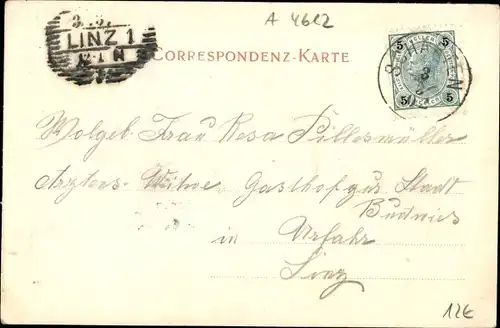 A 4612
3. 5.
LINZ 1
CORRESPONDENZ-KARTE
5 5
5 5
Wolgeb. Frau Rosa Pillesmüller
Arztens-Witwe Gasthof zur Stadt
Budweis
in Urfahr
Linz
12€